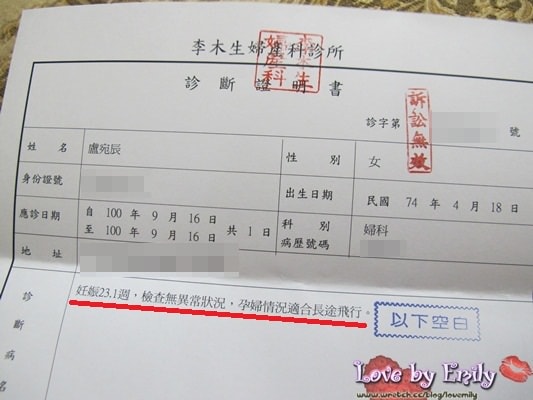 李木生婦產科診所
李木生婦產科
診斷證明書
訴訟無效
診字第 號
姓名 盧宛辰 性別 女
身份證號 出生日期 民國 74 年 4 月 18 日
應診日期 自 100 年 9 月 16 日 至 100 年 9 月 16 日 共 1 日 科別 病歷號碼 婦科
地址
診斷病名 妊娠23.1週，檢查無異常狀況，孕婦情況適合長途飛行。
以下空白
Love by Emily
www.wretch.cc/blog/lovemily